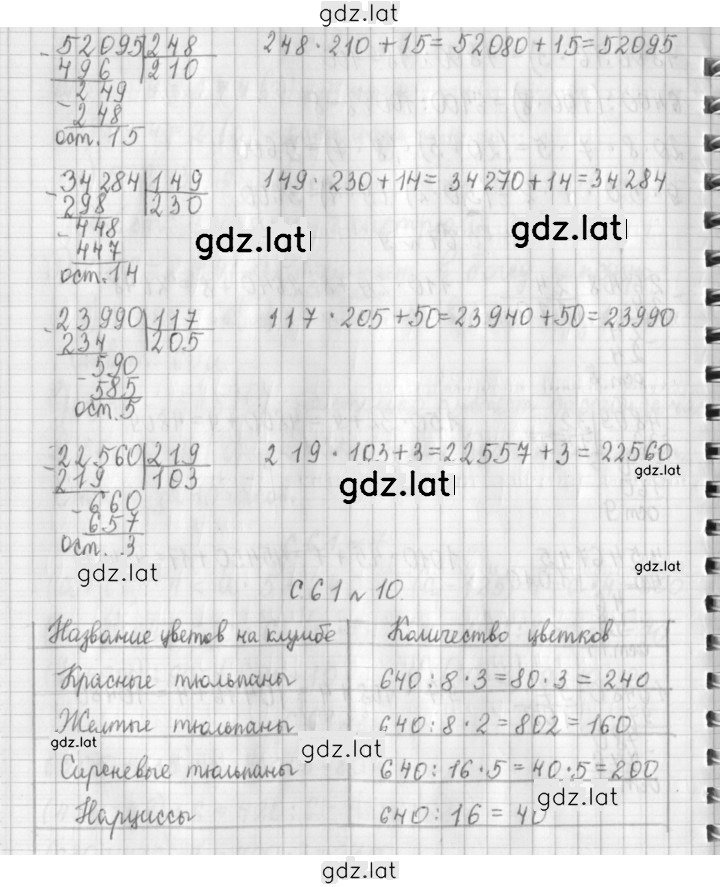 gdz.lat
52095 248 248 · 210 + 15 = 52080 + 15 = 52095
496 210
249
248
ост. 15
34284 149 149 · 230 + 14 = 34270 + 14 = 34284
298 230
448
447
gdz.lat gdz.lat
ост. 14
23990 117 117 · 205 + 50 = 23940 + 50 = 23990
234 205
590
585
ост. 5
22560 219 219 · 103 + 3 = 22557 + 3 = 22560
219 103 gdz.lat gdz.lat
660
657
ост. 3
gdz.lat gdz.lat
с 61 № 10.
Название цветов на клумбе Количество цветков
Красные тюльпаны 640 : 8 · 3 = 80 · 3 = 240
Желтые тюльпаны 640 : 8 · 2 = 802 = 160
gdz.lat gdz.lat
Сиреневые тюльпаны 640 : 16 · 5 = 40 · 5 = 200
gdz.lat
Нарциссы 640 : 16 = 40
gdz.lat